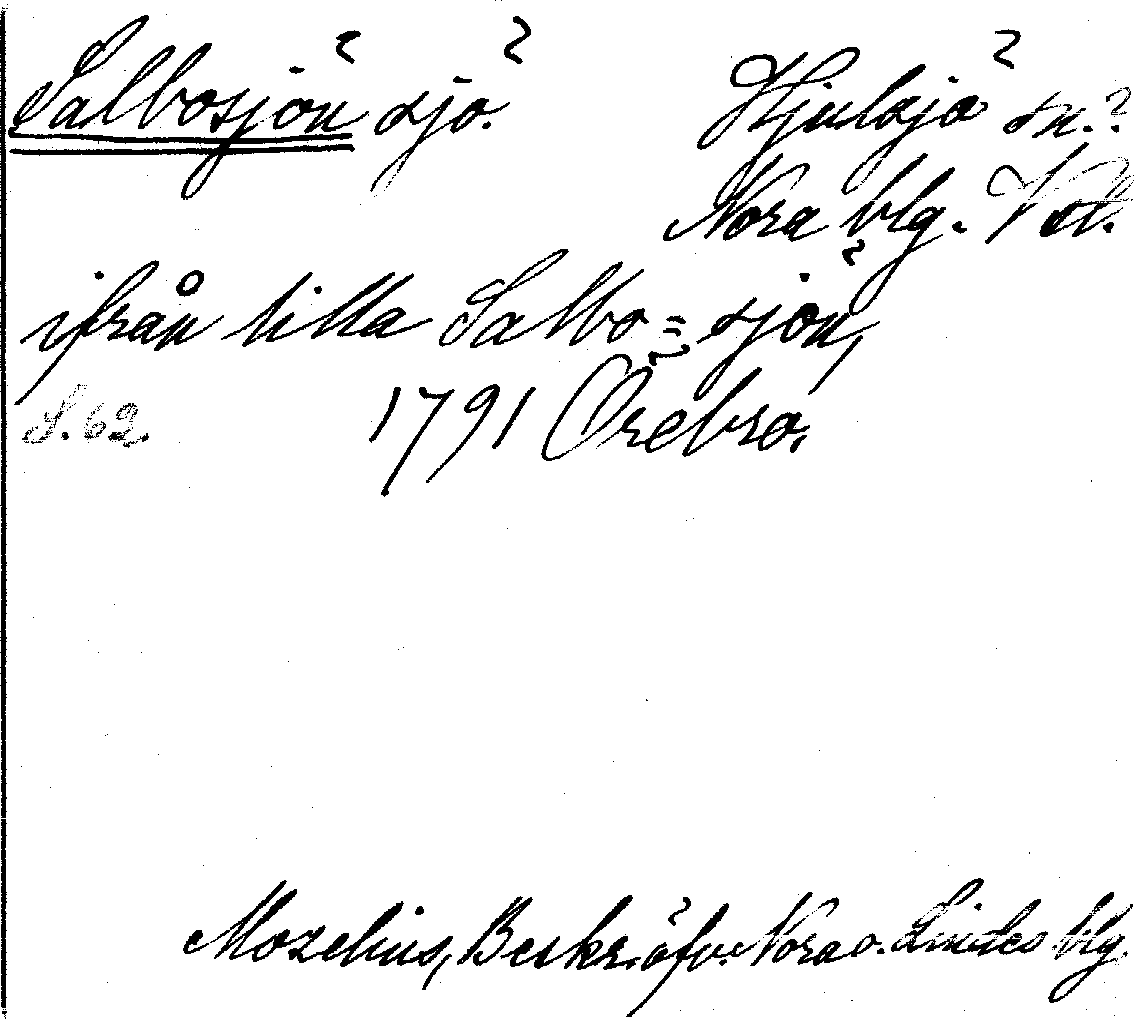 Salbosjön sjö. Hjulsjö sn.?
Nora blg. Vstl.
ifrån lilla Salbo=sjön,
S. 62. 1791 Örebro.
Mozelius, Beskr. öfv. Nora o. Lindes blg.